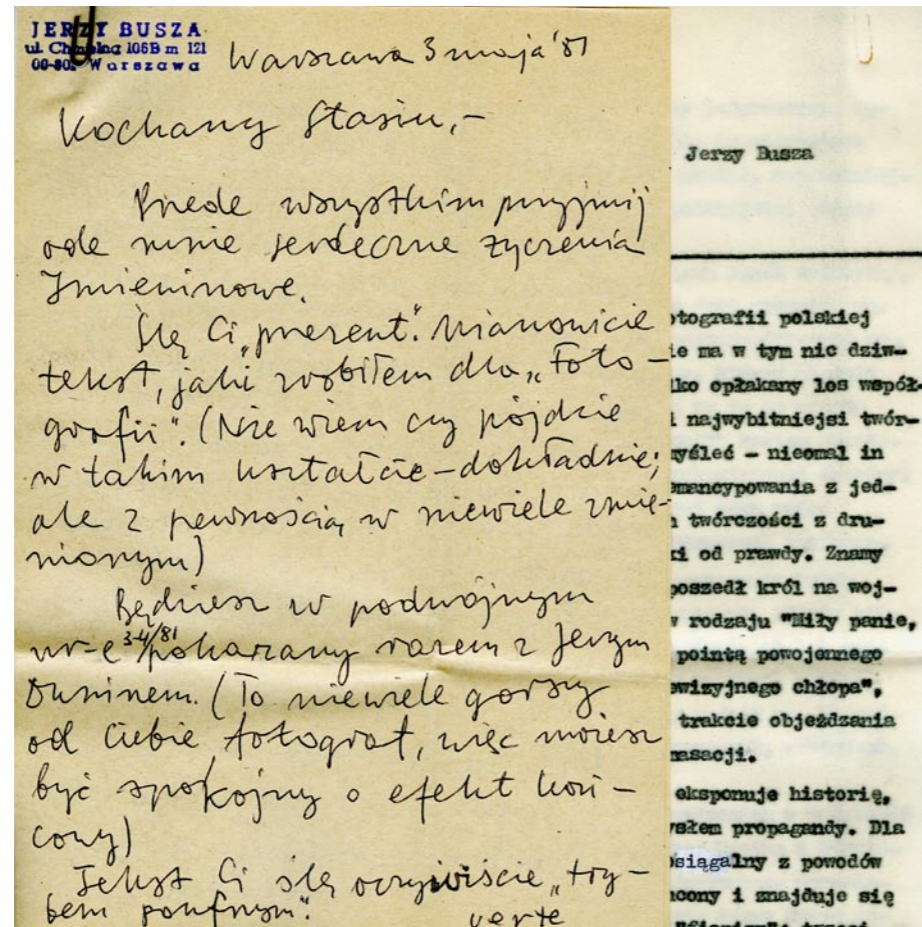 JERZY BUSZA
ul. Chmielna 106B m 121
00-80 Warszawa
Warszawa 3 maja '81
Kochany Stasiu,-
Przede wszystkim przyjmij
ode mnie serdeczne życzenia
Imieninowe.
Ślę Ci „prezent". Mianowicie
tekst, jaki zrobiłem dla „Foto-
grafii". (Nie wiem czy pójdzie
w takim kształcie - dokładnie;
ale z pewnością w niewiele zmie-
nionym)
Będziesz w podwójnym
nr-e 3-4/81 pokazany razem z Jerzym
Duninem. (To niewiele gorszy
od Ciebie fotograf, więc możesz
być spokojny o efekt koń-
cowy)
Tekst Ci ślę oczywiście „try-
bem poufnym".
verte
Jerzy Busza
otografii polskiej
ie ma w tym nic dziw-
lko opłakany los współ-
i najwybitniejsi twór-
myśleć - nieomal in
emancypowania z jed-
twórczości z dru-
ki od prawdy. Znamy
poszedł król na woj-
w rodzaju "Miły panie,
pointą powojennego
ewizyjnego chłopa",
trakcie objeżdżania
masacji.
eksponuje historię,
ysłem propagandy. Dla
osiągalny z powodów
cony i znajduje się